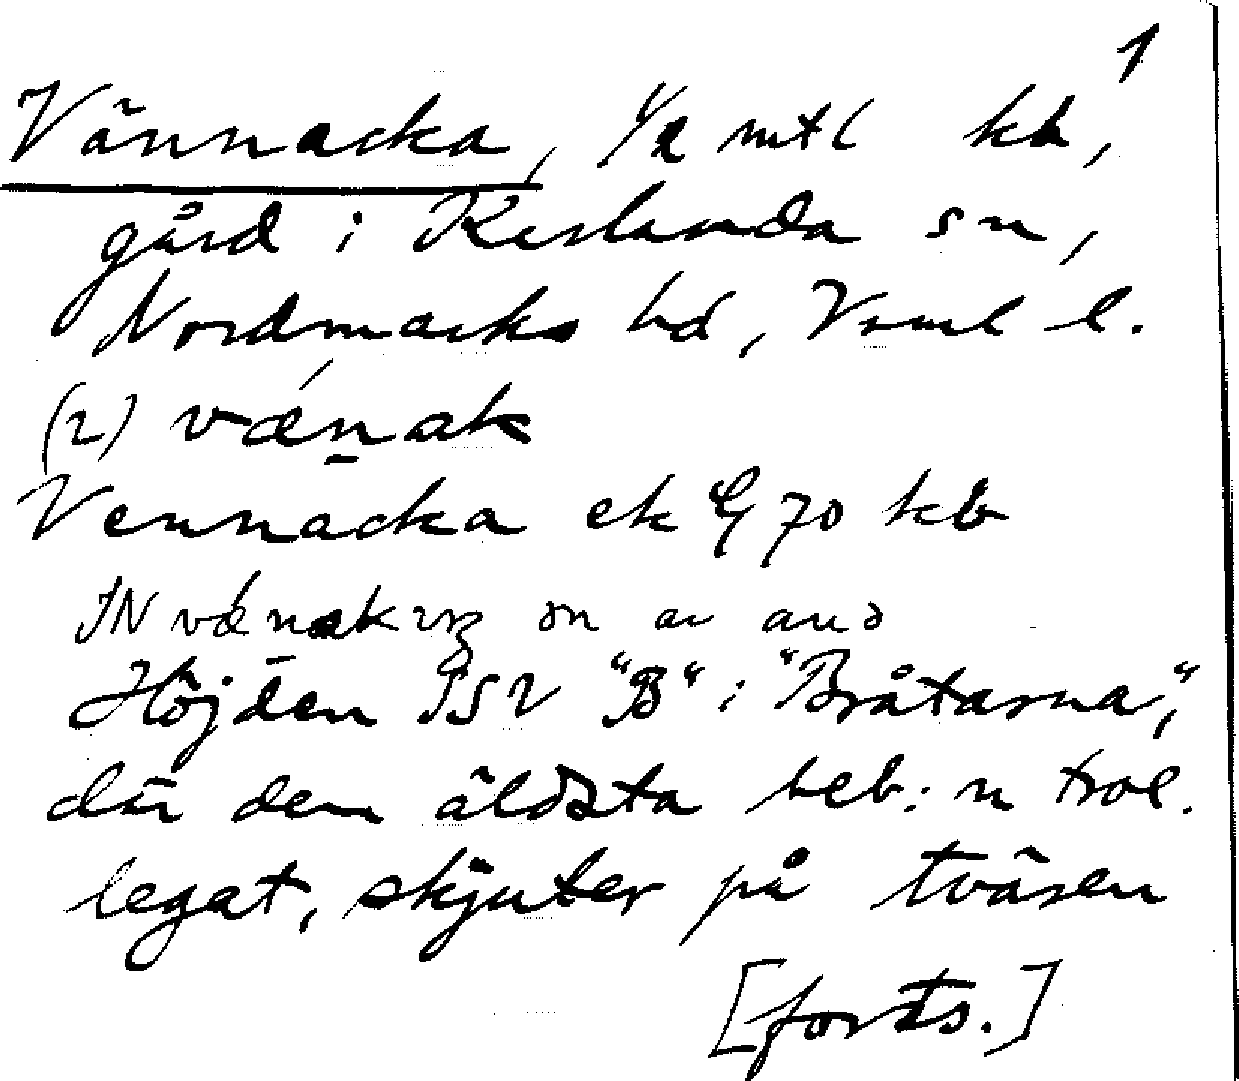 1
Vännacka, 1/2 mtl kb,
gård i Karlanda sn,
Nordmarks hd, Vrml l.
(2) væ´n̠ak
Vennacka ek G 70 kb
IN væ´nak on av and
Höjden SSV "B" i "Bråtarna",
där den äldsta beb:n trol.
legat, skjuter på tvären
[forts.]